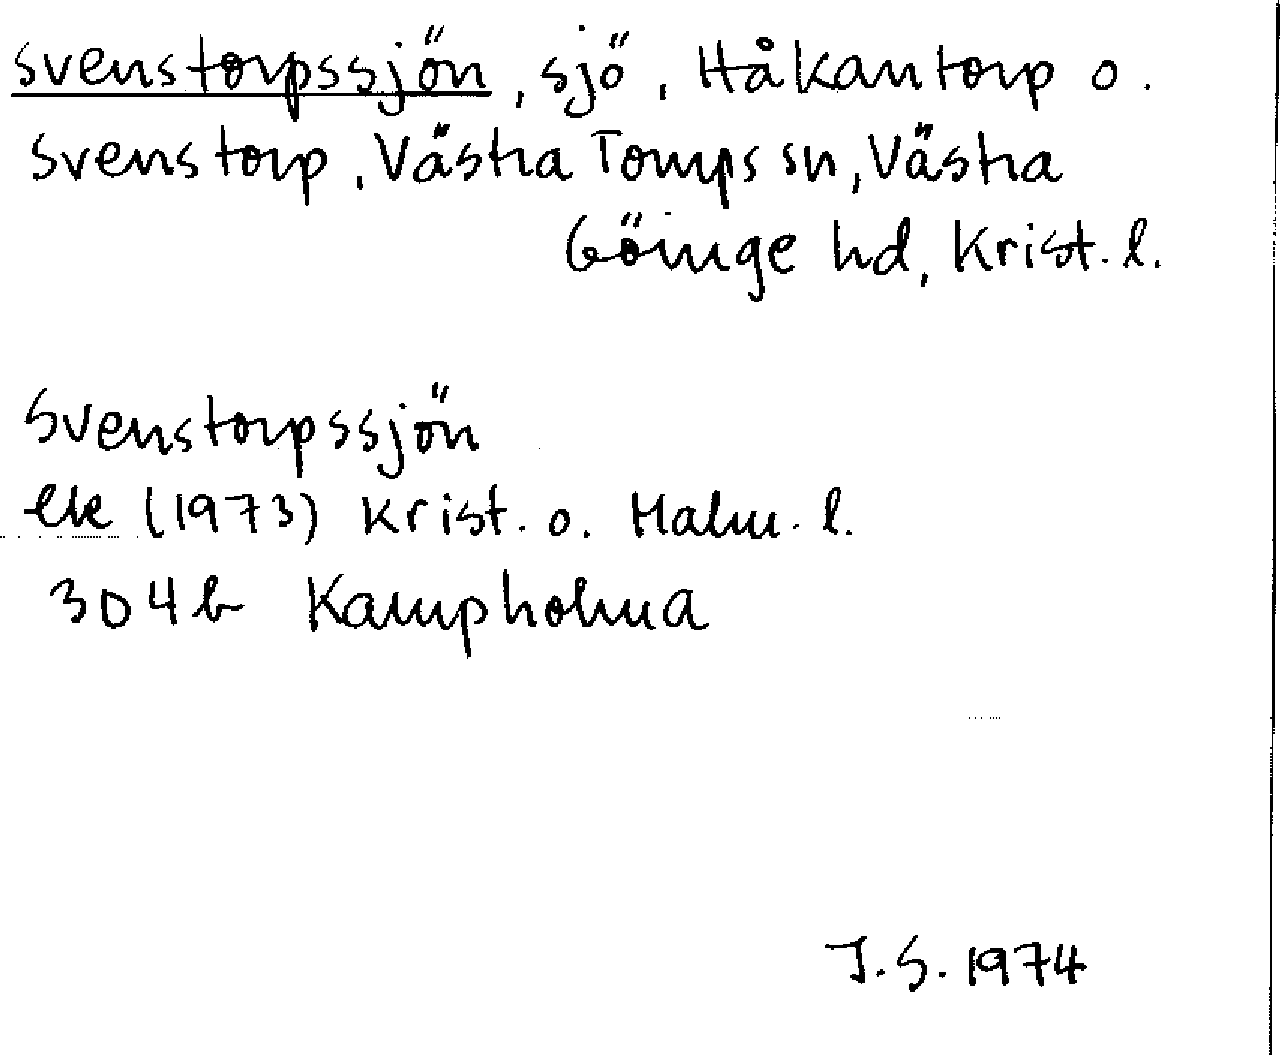 Svenstorpssjön, sjö, Håkantorp o.
Svenstorp, Västra Torups sn, Västra
Göinge hd, Krist. l.
Svenstorpssjön
Ek (1973) Krist. o. Malm. l.
304b Kampholma
J.S. 1974